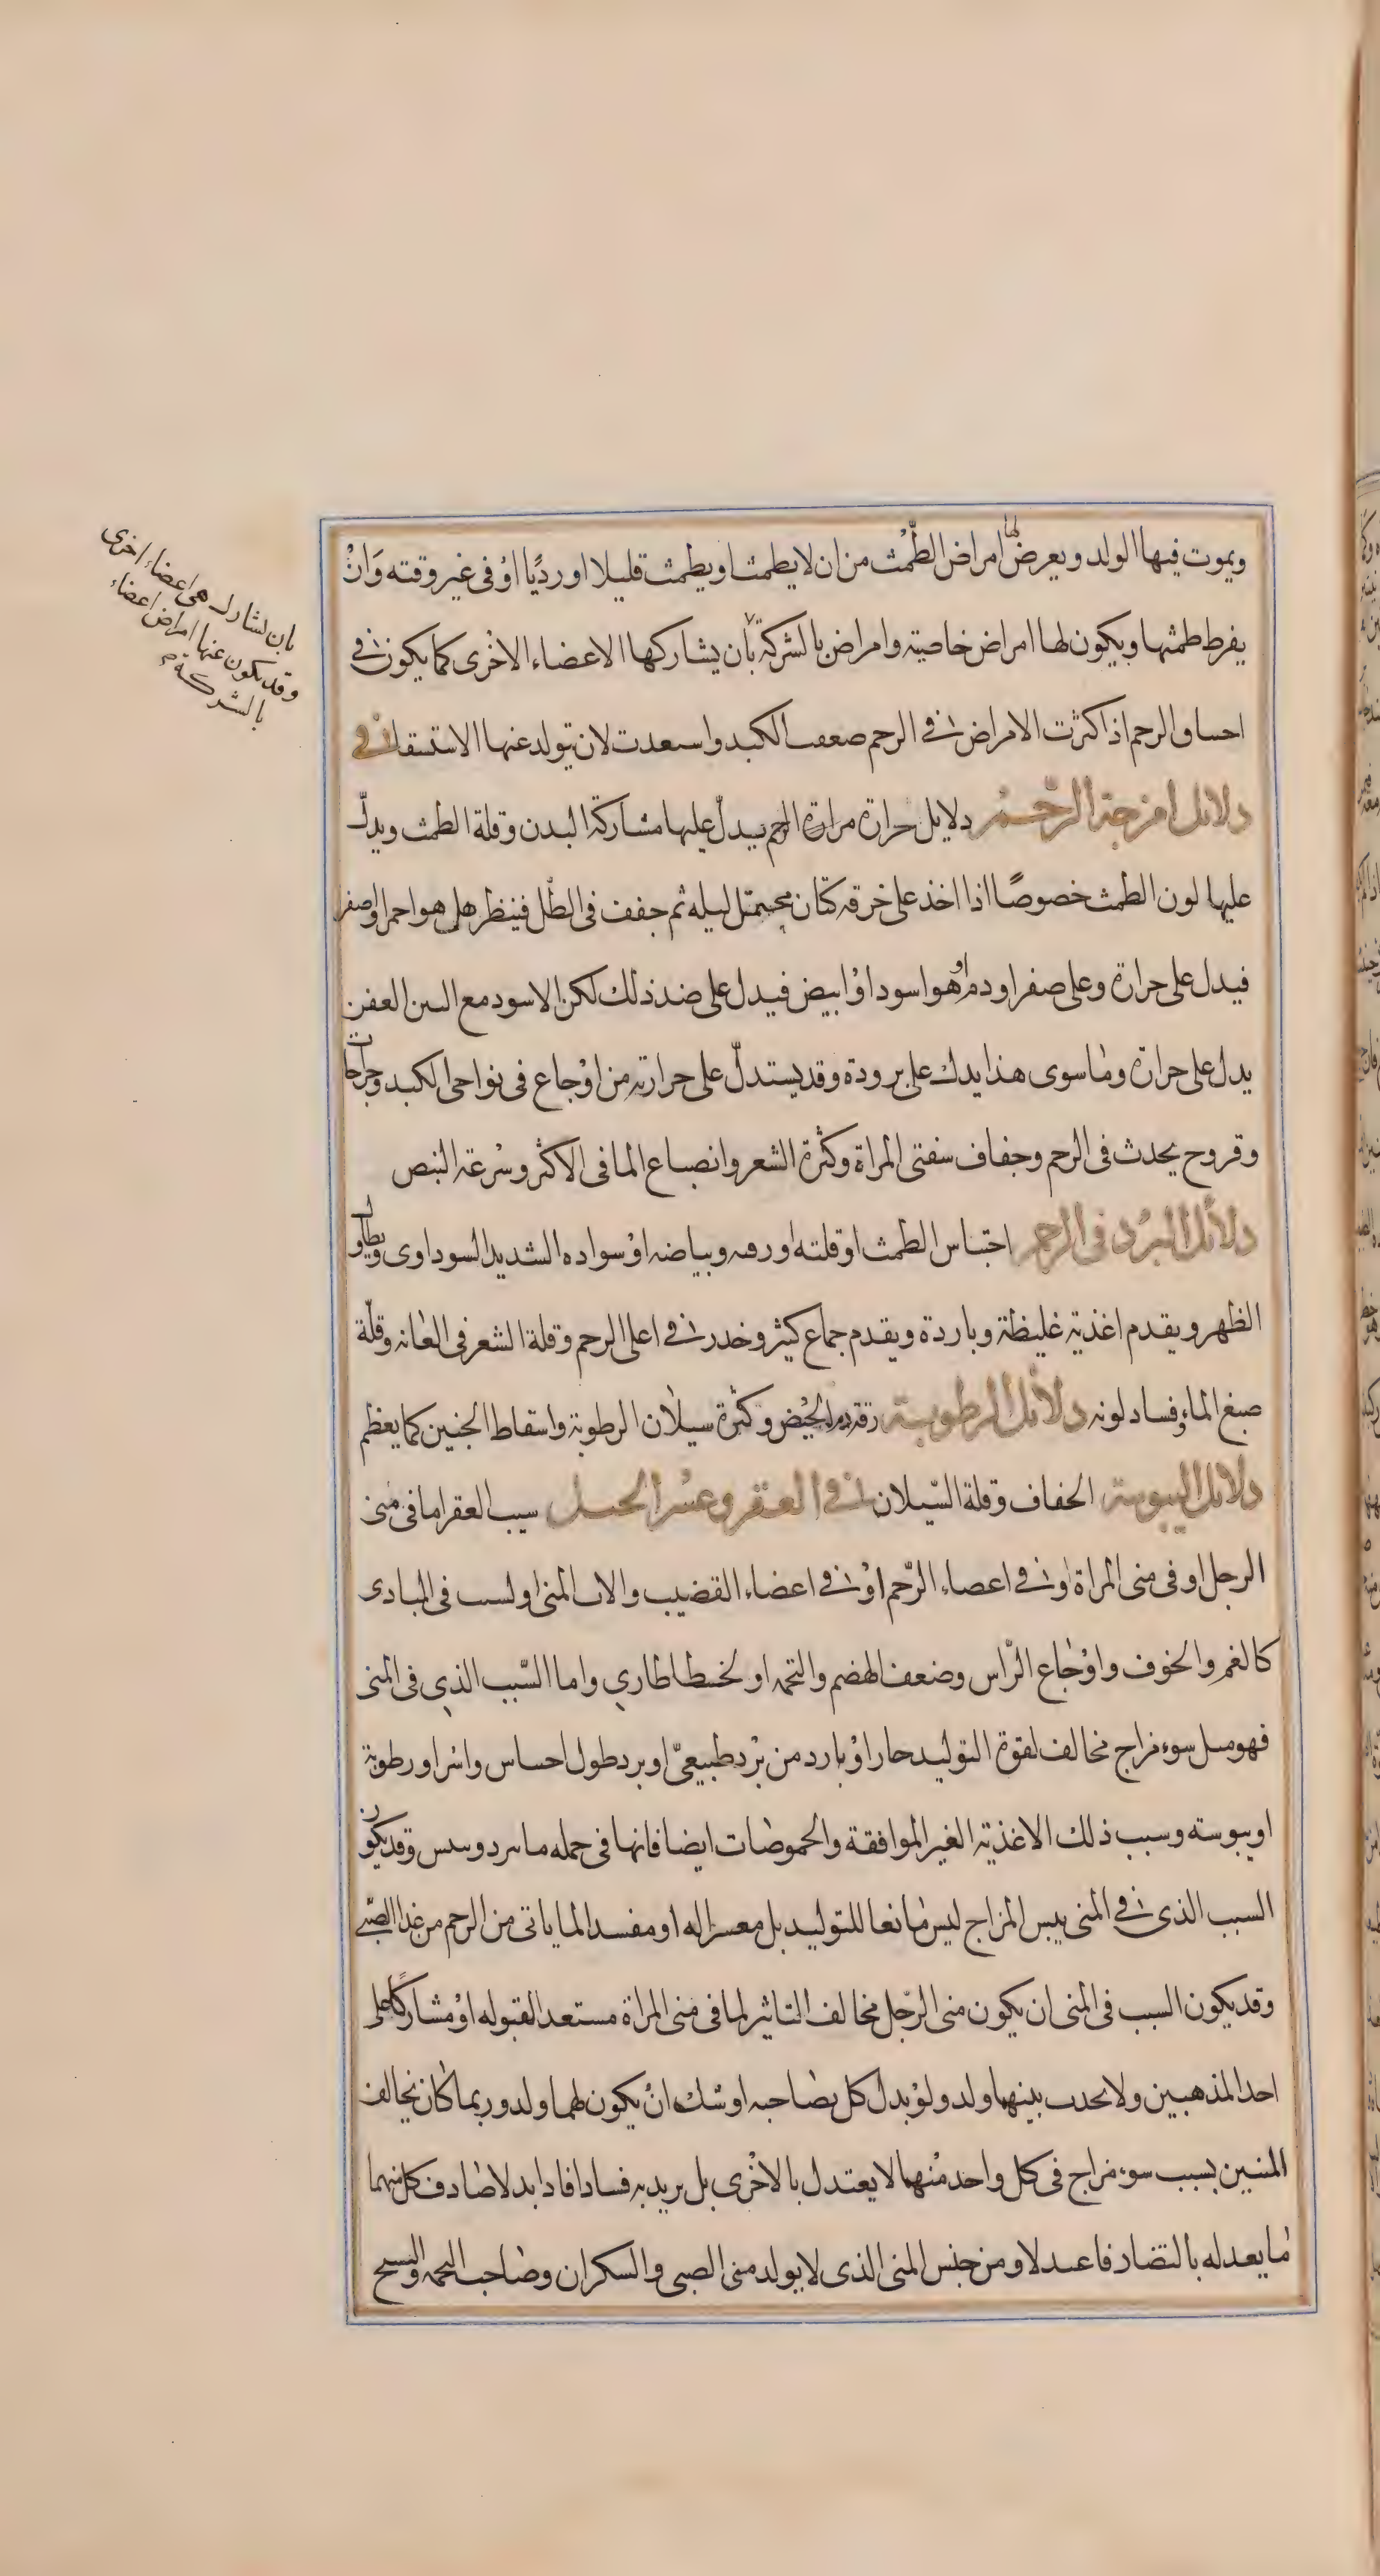 ويموت فيها الولد ويعرض لها امراض الطّمْث من ان لا يطمث او يطمث قليلا او رديًا اوْ فى غير وقته وَانْ
يفرط طمثها ويكون لها امراض خاصية وامراض بالشركة بأن يشاركها الاعضاء الاخْرى كما يكون فى
احسا و الرحم اذا كثرت الامراض فى الرحم صعفت الكبد واسعدت لان تولد عنها الاستسقا فى
دلائل امزجة الرّحم دلايل حرارة مرارة الرحم يدلّ عليها مشاركة البدن وقلة الطمث ويدل
عليها لون الطمث خصوصًا اذا اخذ على خرقه كتان ليله ثم جفف فى الظّل فينظر هل هو احمر او صفر
فيدل على حرارة وعلى صفرا ودم او هو اسود اوْ ابيض فيدل على ضد ذلك لكن الاسود مع العفن
يدل على حرارة وما سوى هذا يدل على برودة وقد يستدلّ على حرارته من اوْجاع فى نواحى الكبد وجراحات
وقروح يحدث فى الرحم وجفاف سفتى المراة وكثرة الشعر وانصباع الما فى الاكثر وسرعة النبص
دلائل البرد فى الرحم احتباس الطمث او قلته او رقه وبياضه اوْ سواده الشديد السوداوى وتطاول
الظهر ويقدم اغذية غليظة وباردة ويقدم جماع كثير وخدر فى اعلى الرحم وقلة الشعر فى العانه وقلّة
صبغ الماء وفساد لونه دلائل الرطوبة رقه دم الحيْض وكثرة سيلان الرطوبة واسقاط الجنين كما يعظم
دلائل اليبوسة الجفاف وقلة السّيلان فى العقر وعسْر الحبل سبب العقر اما فى منى
الرجل او فى منى المراة او فى اعصاء الرّحم اوْ فى اعضاء القضيب والات المنى او لسبب فى المبادى
كالغم والخوف واوْجاع الرّاس وضعف الهضم والتخمه او لخلط طارى واما السّبب الذي فى المنى
فهو مثل سوء مزاج مخالف لقوة التوليد حار اوْ بارد من برْد طبيعىّ او برد طول احساس واسر او رطوبة
او يبوسته وسبب ذلك الاغذية الغير الموافقة والحموضات ايضا فانها فى جمله ما يبرد وييبس وقد يكون
السبب الذى فى المنى يبس المزاج ليس مانعا للتوليد بل معسرا له او مفسدا لما ياتى من الرحم من غذا الصّبى
وقد يكون السبب فى المنى ان يكون منى الرّجل مخالف التاثير لما فى منى المراة مستعدا لقبوله اوْ مشاركًا على
احد المذهبين ولا يحدث بينهما ولد ولوْ بدل كل بصاحبه اوشك انْ يكون لهما ولد وربما كان تخالف
المنيين بسبب سوء مزاج فى كل واحد منْهما لا يعتدل بالاخْرى بل يريد به فسادا فاذا بدلا صادف كل منهما
ما يعدله بالتضاد فاعدلا ومن جنس المنى الذى لا يولد منى الصبى والسكران وصاحب التخمه والشيخ
بان لشارك هى اعضاء اخرى
وقد يكون عنها امراض اعضاء
بالشركة